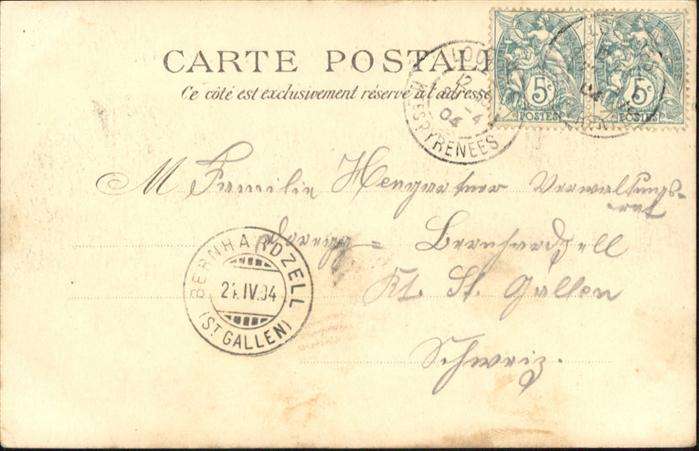 CARTE POSTALE
Ce côté est exclusivement réservé à l'adresse
5c 5c
POSTES POSTES
12
-4
04
HTES PYRENEES
04
M Familie Hengartner Verwaltungs-
rat
Bernhardzell
Kt. St. Gallen
Schweiz.
BERNHARDZELL
21.IV.04
(ST. GALLEN)